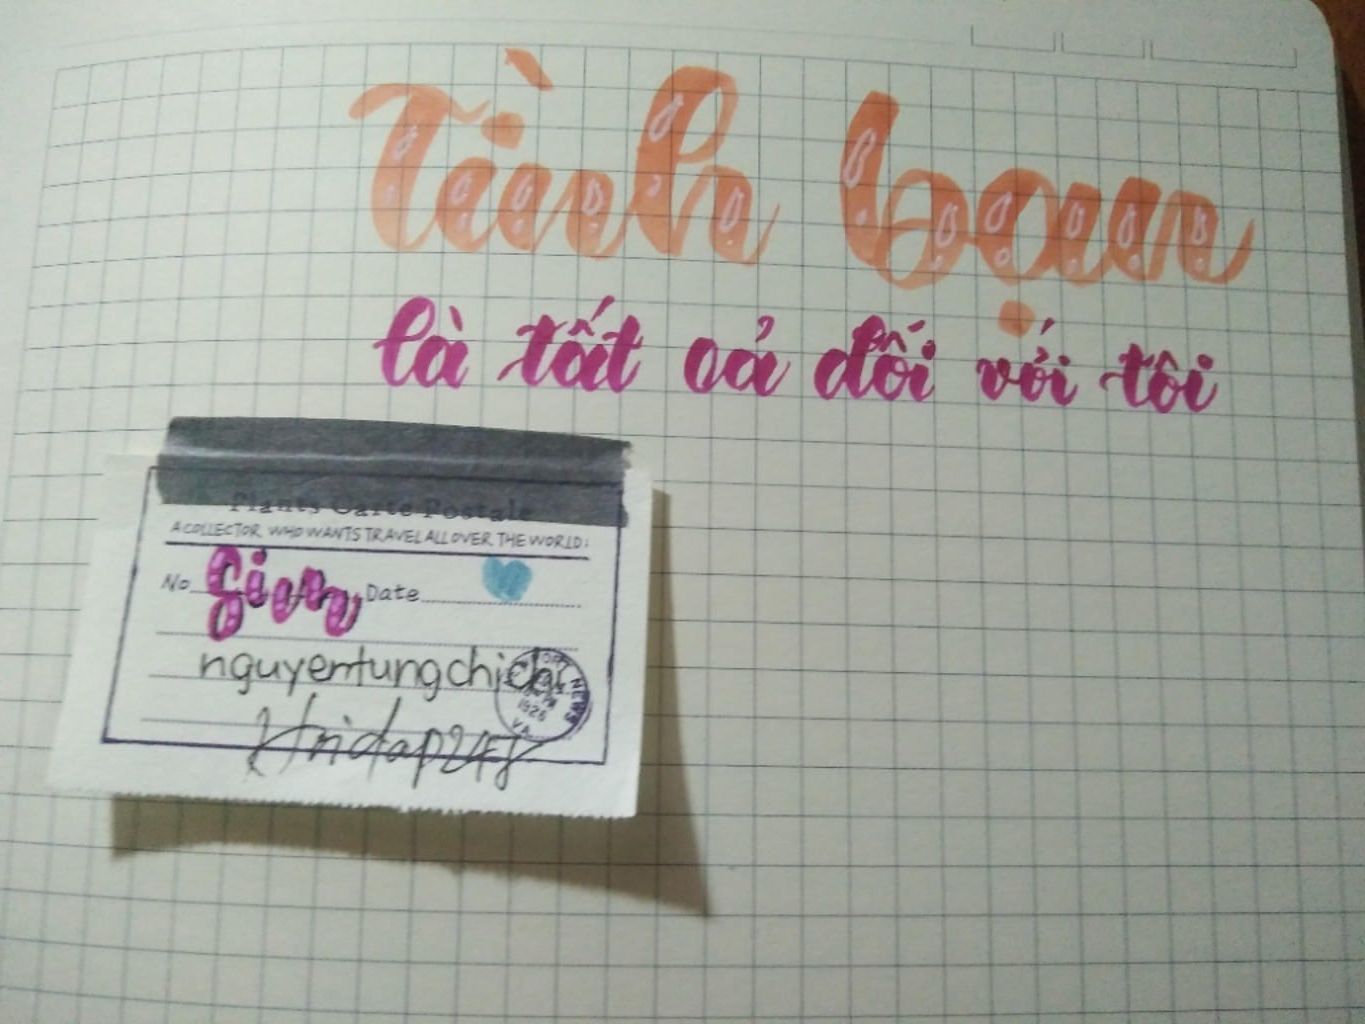 Tình bạn
là tất cả đối với tôi
Plants Carte Postale
A COLLECTOR WHO WANTS TRAVEL ALL OVER THE WORLD:
No. Date
nguyentungchichi
NEWS
1926
VA